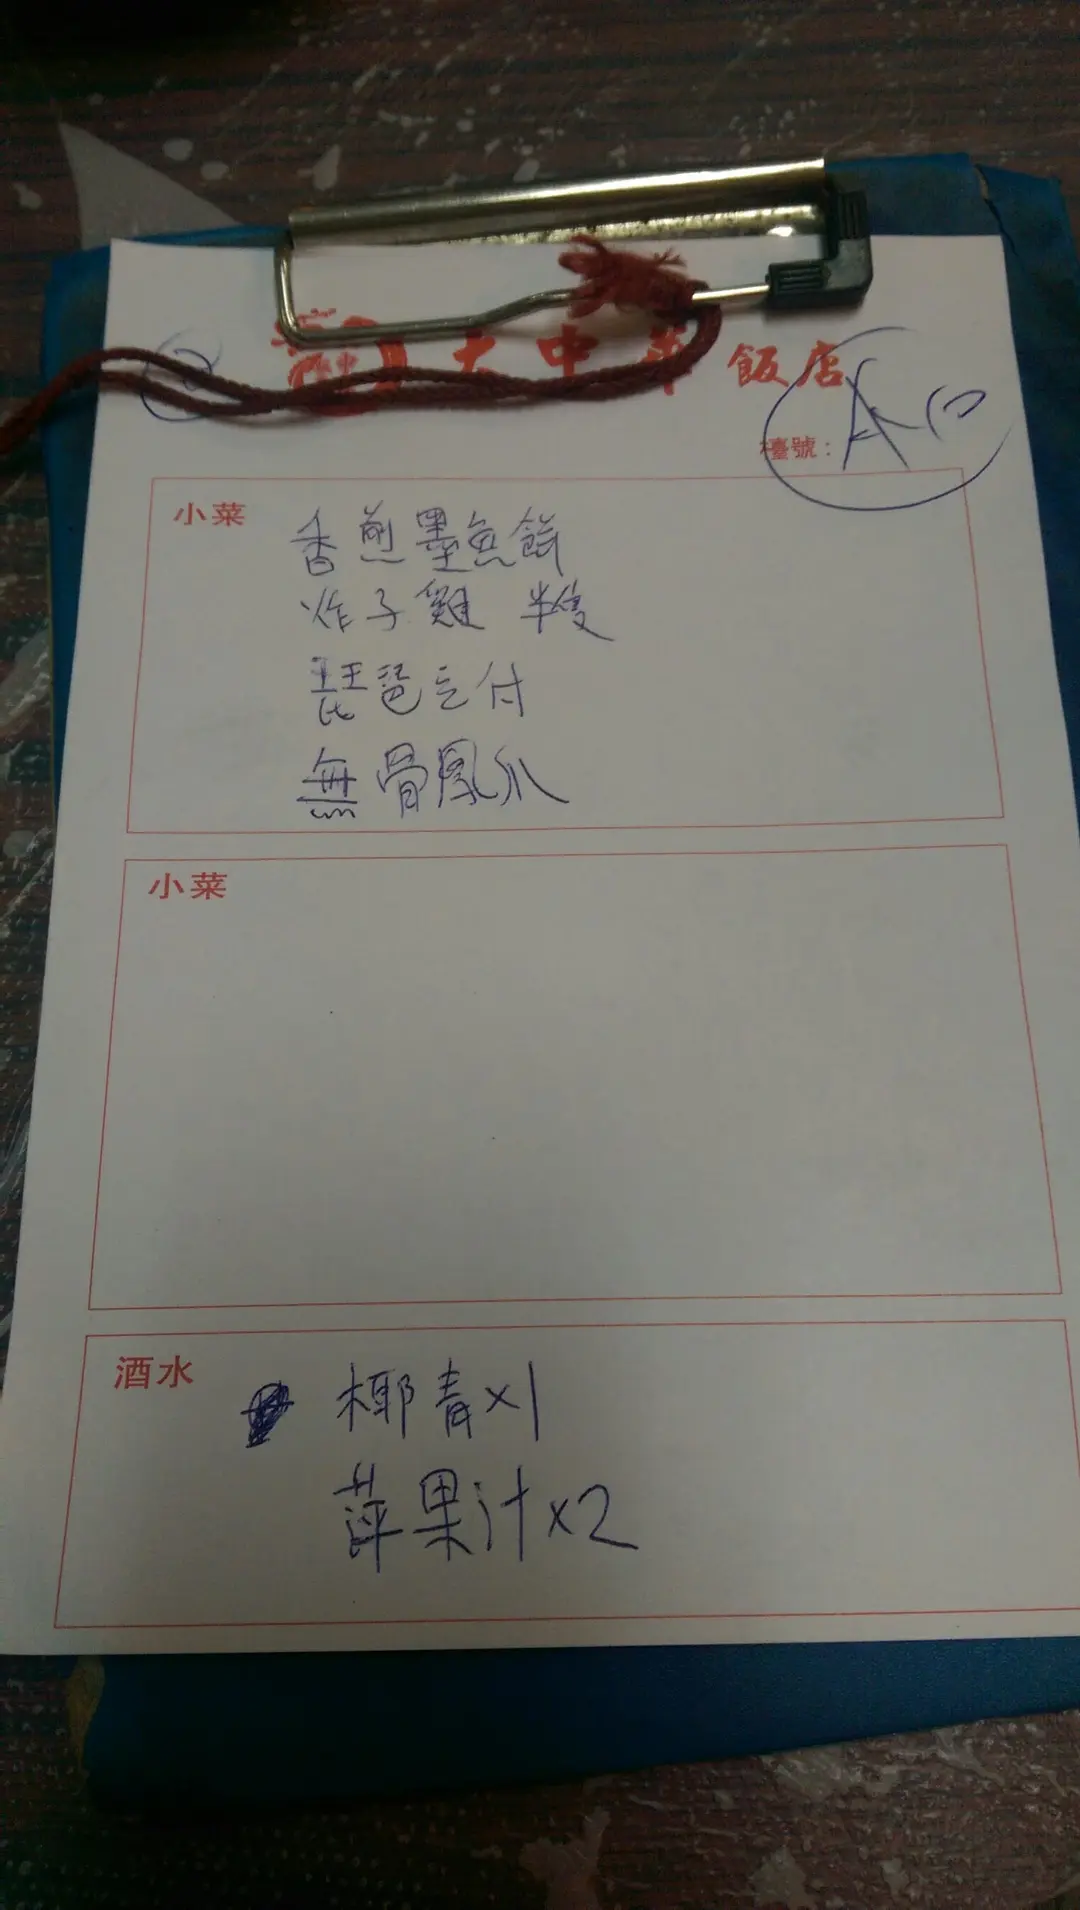 大中華飯店
檯號：A
小菜
香煎墨魚餅
炸子雞 半隻
琵琶豆付
無骨鳳爪
小菜
酒水
椰青x1
萍果汁x2